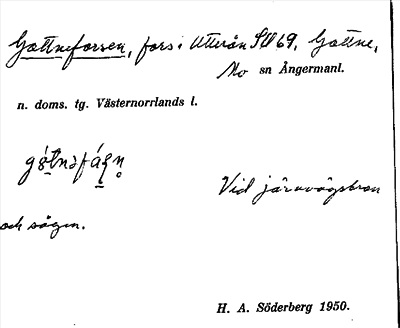 Gottneforsen, fors i Utterån SV 69, Gottne,
Mo sn Ångermanl.
n. doms. tg. Västernorrlands l.
Vid järnvägsbron
och sågen.
H. A. Söderberg 1950.